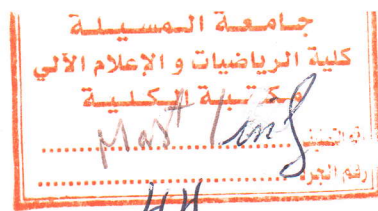 جامعة المسيلة
كلية الرياضيات و الإعلام الآلي
مكتبة الكلية
Mast
رقم الجرد
44